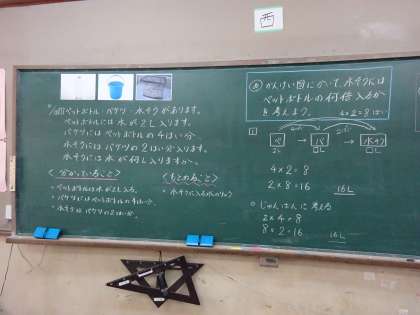 西
ペットボトル・バケツ・水そうがあります。
ペットボトルには水が2L入ります。
バケツにはペットボトルの4はい分、
水そうにはバケツの2はい分入ります。
水そうには水が何L入りますか。
〈分かっていること〉
・ペットボトルは水が2L入る。
・バケツにはペットボトルの4はい分。
・水そうはバケツの2はい分。
〈もとめること〉
・水そうに入る水のりょう
かんけい図にかいて、水そうには
ペットボトルの何倍入るか
を考えよう。
4×2=8
1
ペ → バ → 水そう
2L □L □L
4×2=8
2×8=16 16L
○じゅんばんに考える
2×4=8
8×2=16 16L